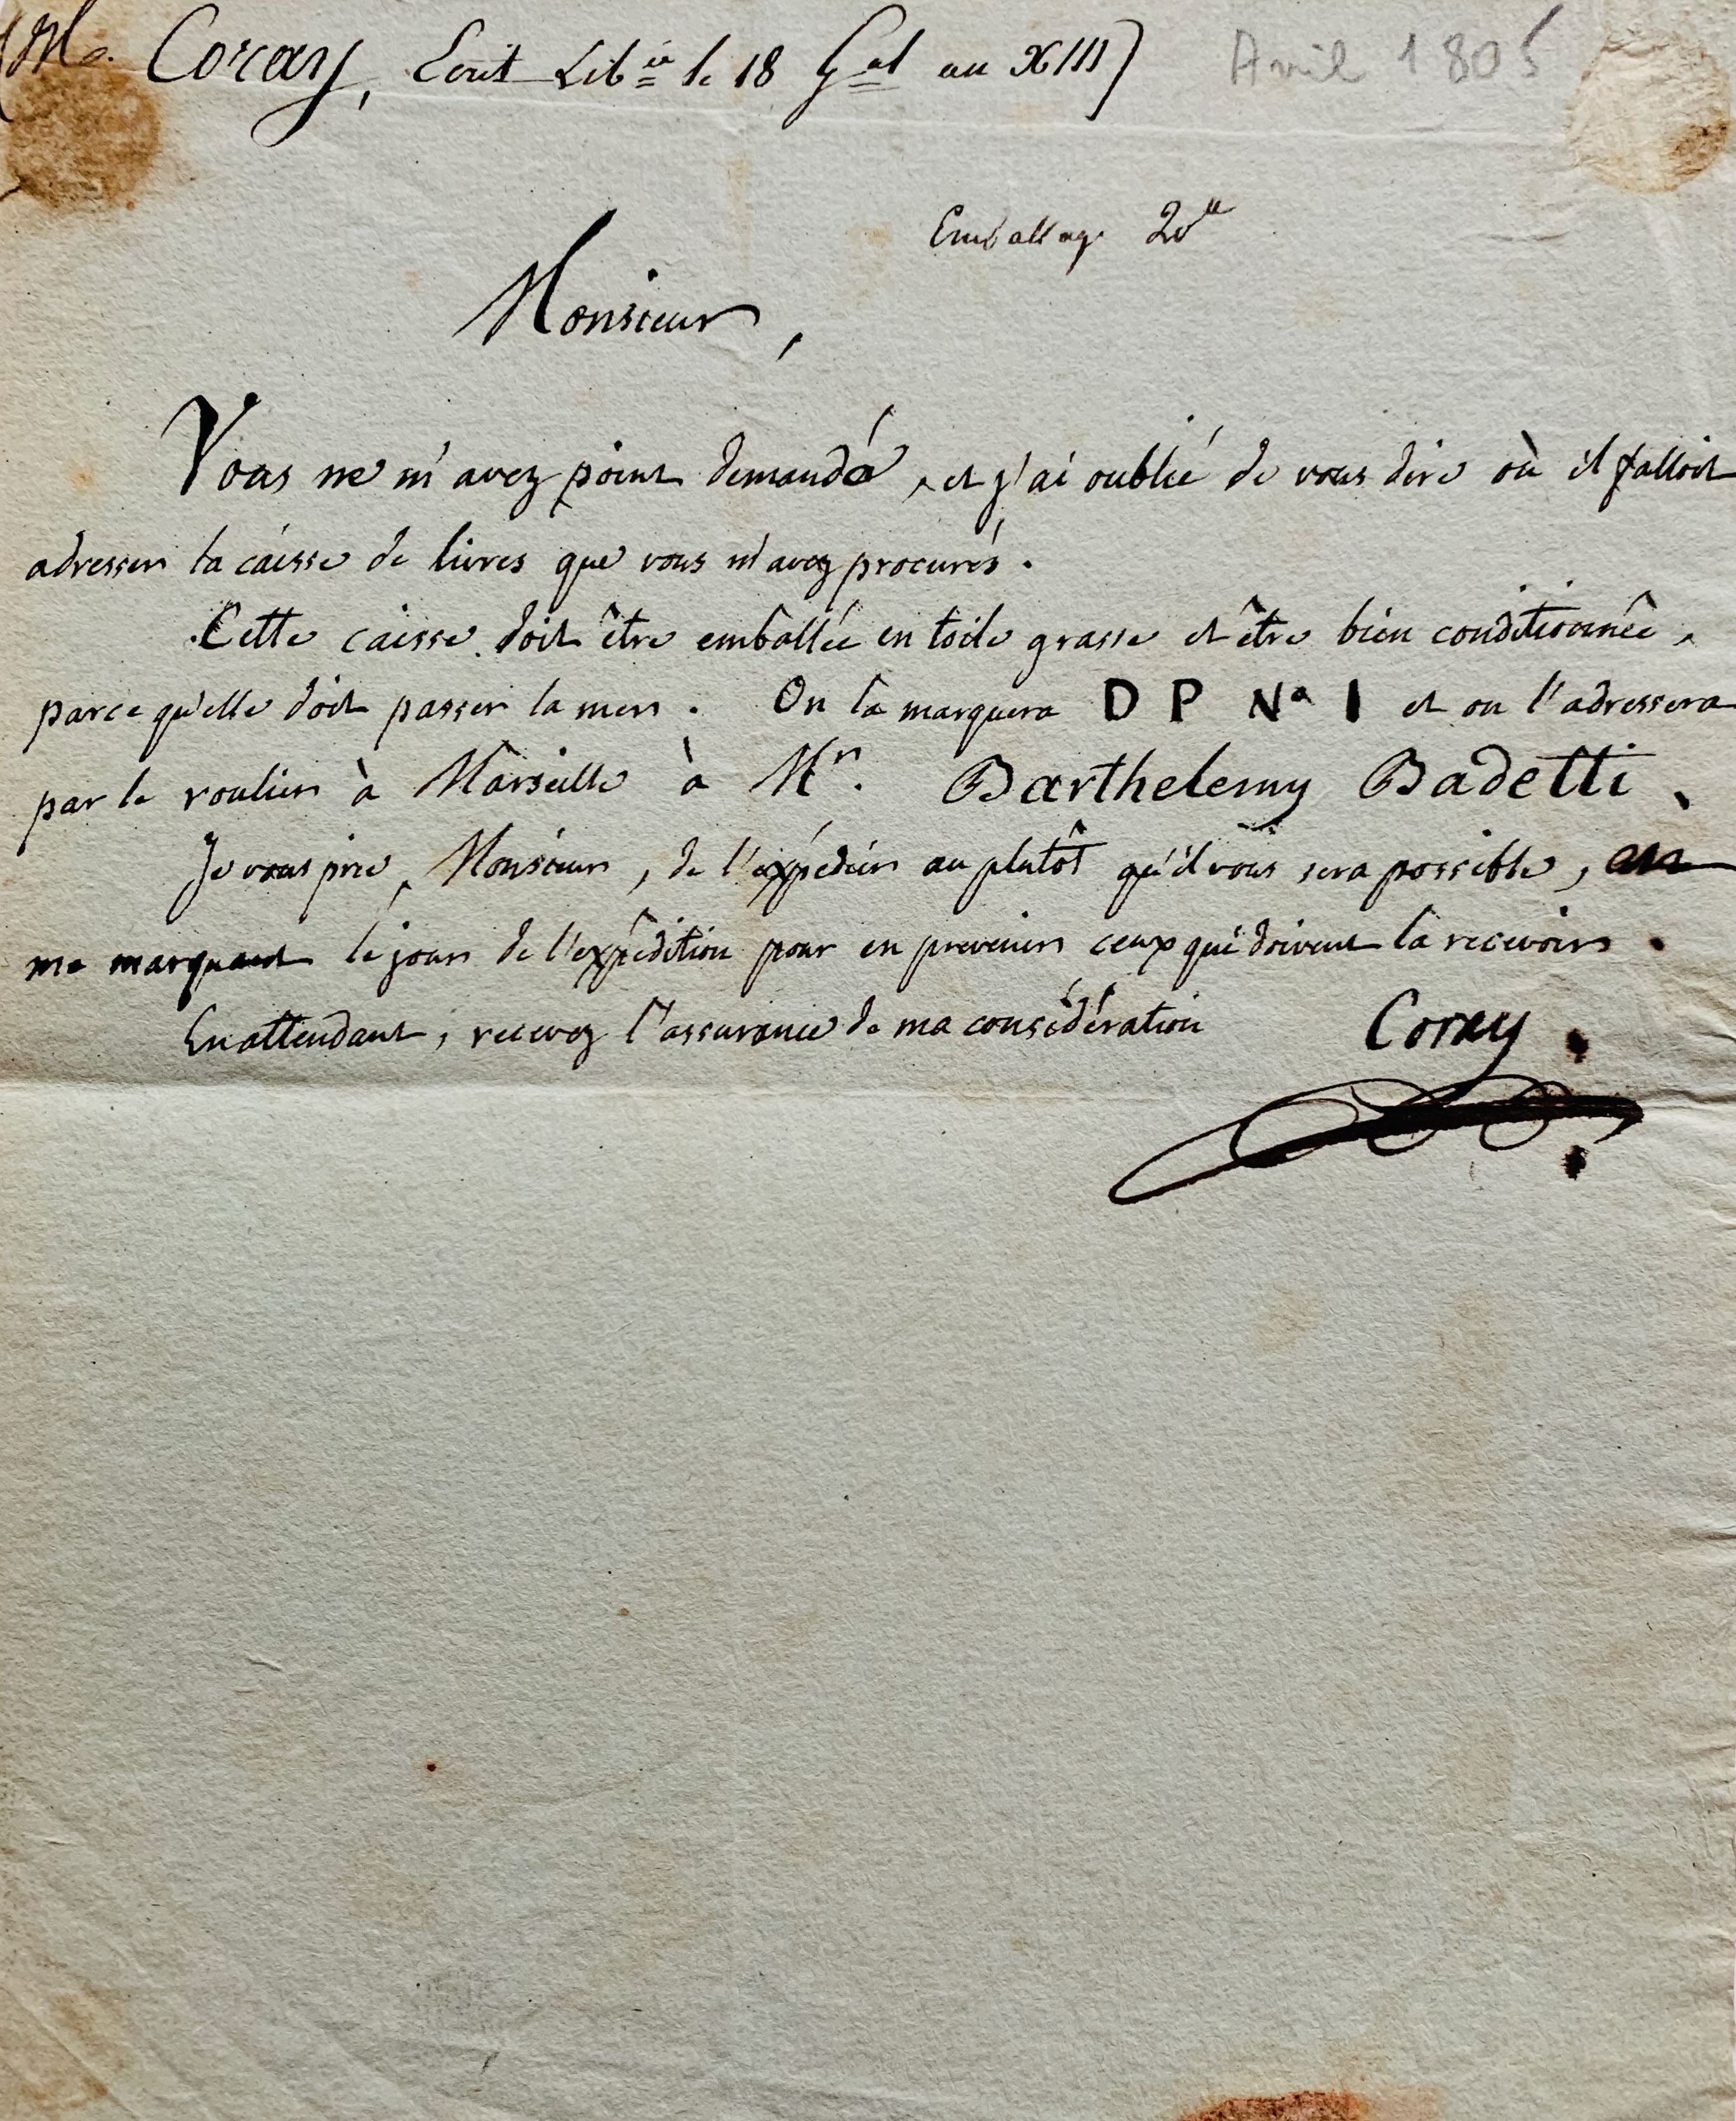 (Mr. Coray, Ecrit Libie le 18 Gal an XIII) Avril 1805
Emballage 20#
Monsieur,
Vous ne m'avez point demandé, et j'ai oublié de vous dire où il falloit
adresser la caisse de livres que vous m'avez procurés.
Cette caisse doit être emballée en toile grasse et être bien conditionnée,
parce qu'elle doit passer la mer. On la marquera D P No 1 et on l'adressera
par le roulier à Marseille à Mr. Barthelemy Badetti.
Je vous prie, Monsieur, de l'expédier au plutôt qu'il vous sera possible, en
me marquant le jour de l'expédition pour en prevenir ceux qui doivent la recevoir.
En attendant, recevez l'assurance de ma considération Coray.